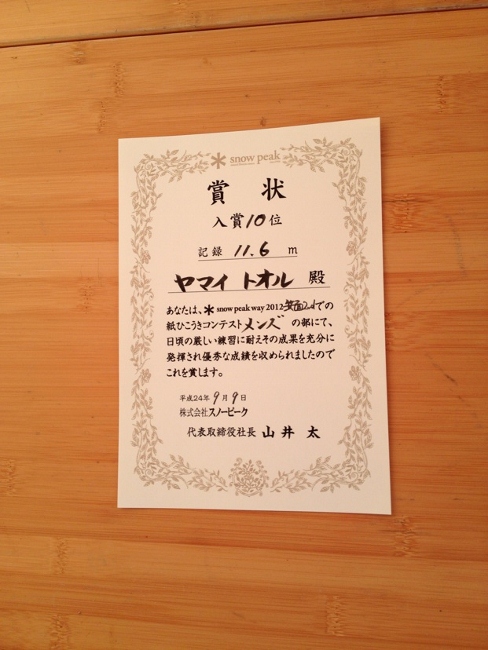 snow peak
賞 状
入賞 10 位
記録 11.6 m
ヤマイ トオル 殿
あなたは、 snow peak way 2012 箕面2ndでの
紙ひこうきコンテスト メンズ の部にて、
日頃の厳しい練習に耐えその成果を充分に
発揮され優秀な成績を収められましたので
これを賞します。
平成24年 9月 9日
株式会社スノーピーク
代表取締役社長 山井 太